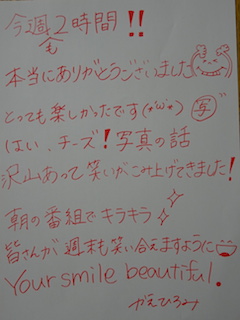 今週も2時間!!
本当にありがとうございました
とっても楽しかったです(*'ω'*) 写
はい、チーズ!写真の話
沢山あって笑いがこみ上げてきました!
朝の番組でキラキラ
皆さんが週末も笑い合えますように
Your smile beautiful.
かえひろみ